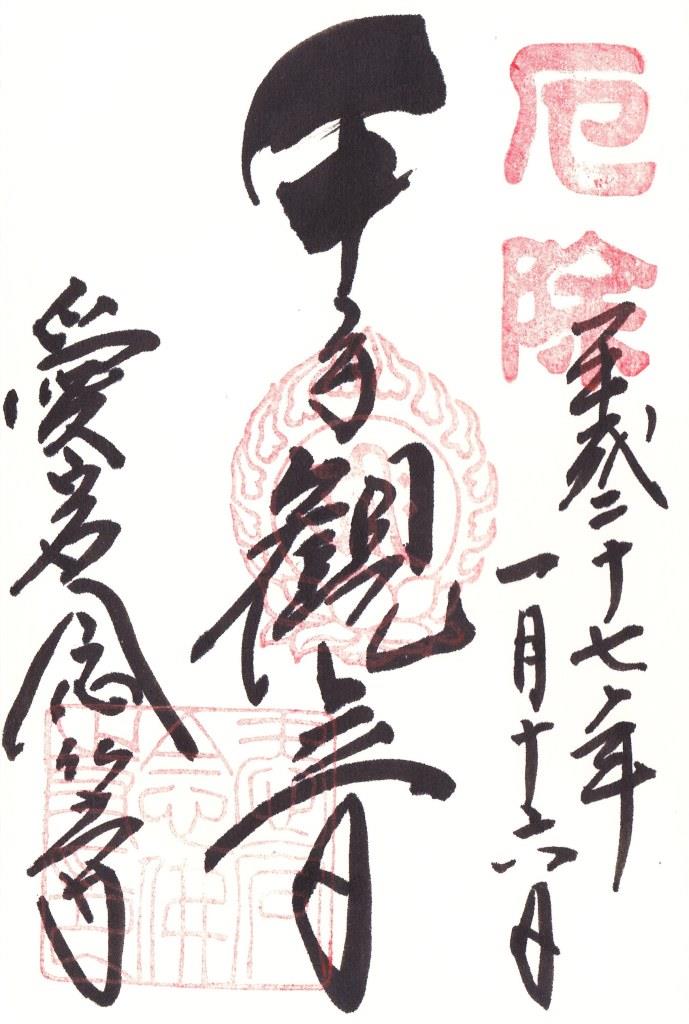 厄除
平成二十七年
一月十六日
千手観音
愛宕念仏寺